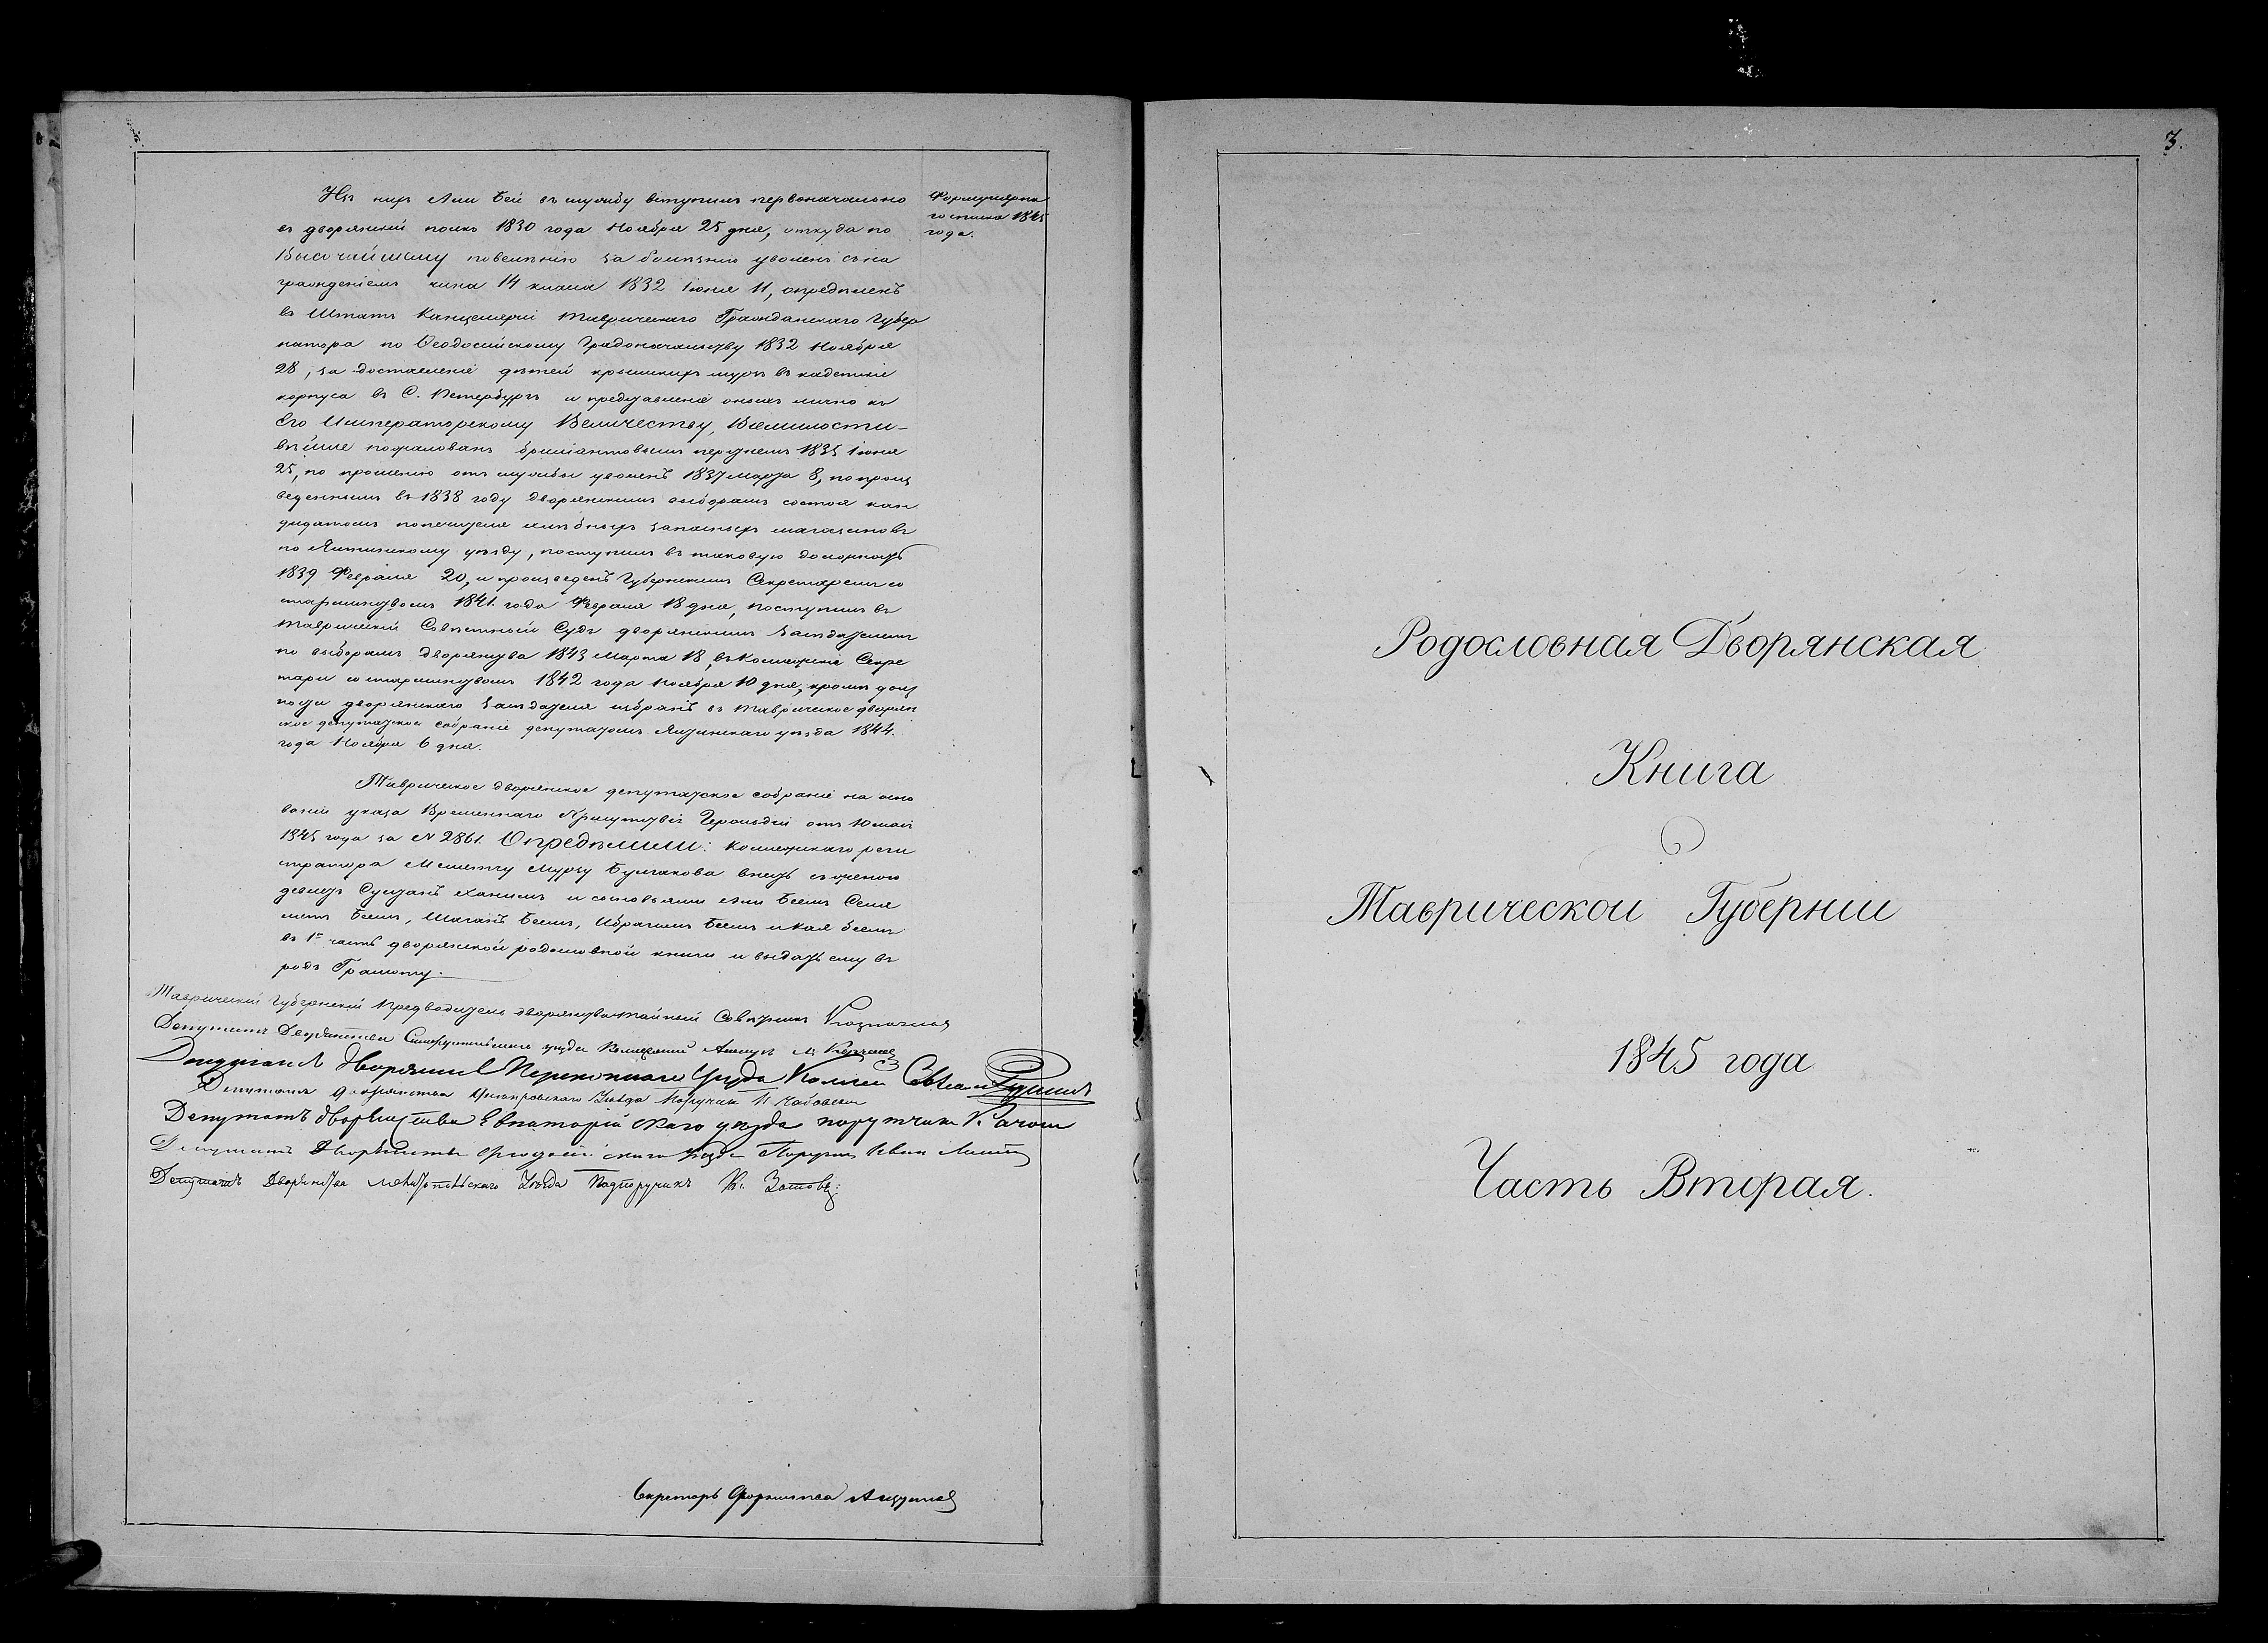 Изъ нихъ Али Бей въ службу вступилъ первоначально
въ дворянскій полкъ 1830 года Ноября 25 дня, откуда по
Высочайшему повелѣнію за болѣзнію уволенъ съ на
гражденіемъ чина 14 класса 1832 Іюня 11, опредѣленъ
въ Штатъ Канцеляріи Таврическаго Гражданскаго Губер
натора по Ѳеодосійскому Градоначальству 1832 Ноября
28, за доставленіе дѣтей крымскихъ мурзъ въ кадетскіе
корпуса въ С. Петербургъ и представленіе оныхъ лично къ
Его Императорскому Величеству, Всемилости-
вѣйше пожалованъ брилліантовымъ перстнемъ 1835 Іюня
25, по прошенію отъ службы уволенъ 1837 Марта 8, по произ
веденнымъ въ 1838 году дворянскимъ выборамъ состоя кан
дидатомъ попечителя хлѣбныхъ запасныхъ магазиновъ
по Ялтинскому уѣзду, поступилъ въ таковую должность
1839 Февраля 20, и произведенъ Губернскимъ Секретаремъ со
старшинствомъ 1841 года Февраля 18 дня, поступилъ въ
Таврическій Совѣстный Судъ дворянскимъ засѣдателемъ
по выборамъ дворянства 1843 Марта 18, въ Коллежскіе Секре
тари со старшинствомъ 1842 года Ноября 10 дня, кромѣ долж
ности дворянскаго засѣдателя избранъ въ Таврическое дворян
ское депутатское собраніе депутатомъ Ялтинскаго уѣзда 1844.
года Ноября 6 дня.
Формулярна
го списка 1845
года.
Таврическое дворянское депутатское собраніе на осно
ваніи указа Временнаго Присутствія Герольдіи отъ 10 мая
1845 года за N 2861. Опредѣлили: Коллежскаго реги
стратора Меметчу Мурзу Булгакова внесть съ женою
девлетъ Султанъ Ханымъ и сыновьями Али Беемъ Селя
метъ Беемъ, Шаганъ Беемъ, Ибраимъ Беемъ и Кая беемъ
въ 1ю часть дворянской родословной книги и выдать ему въ
родъ Грамоту.
Таврическій Губернскій Предводитель дворянства Тайный Совѣтникъ Казначеев
Депутатъ Дворянства Симферопольскаго уѣзда
Депутатъ Дворянства Перекопскаго Уѣзда
Депутатъ дворянства Днѣпровскаго Уѣзда Поручик
Депутатъ дворянства Евпаторійскаго уѣзда порутчикъ
Депутатъ Дворянства Ѳеодосійскаго Уѣзда Поручик
Депутатъ Дворянства Мелитопольскаго Уѣзда Подпоручикъ К. Зотовъ
Секретарь Дворянства
3.
Родословная Дворянская
Книга
Таврической Губернии
1845 года
Часть Вторая.